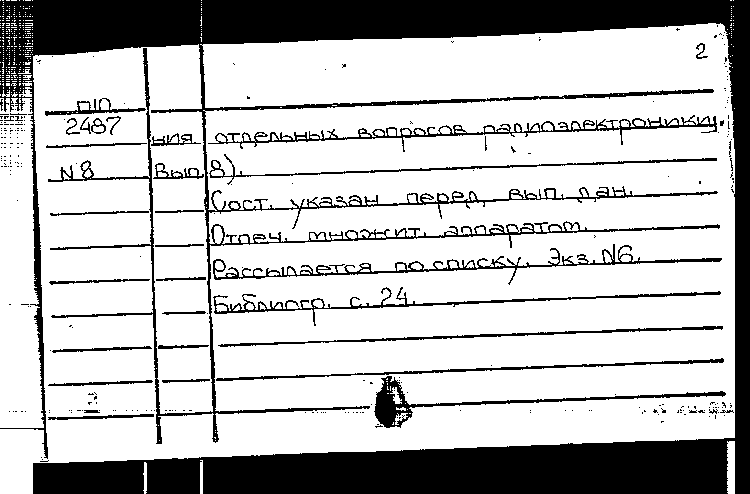 2
П10
2487 ния отдельных вопросов радиоэлектроники.
N8 Вып 8).
Сост. указан перед вып. дан.
Отпеч. множит. аппаратом.
Рассылается по списку. Экз. N6.
Библиогр. с. 24.